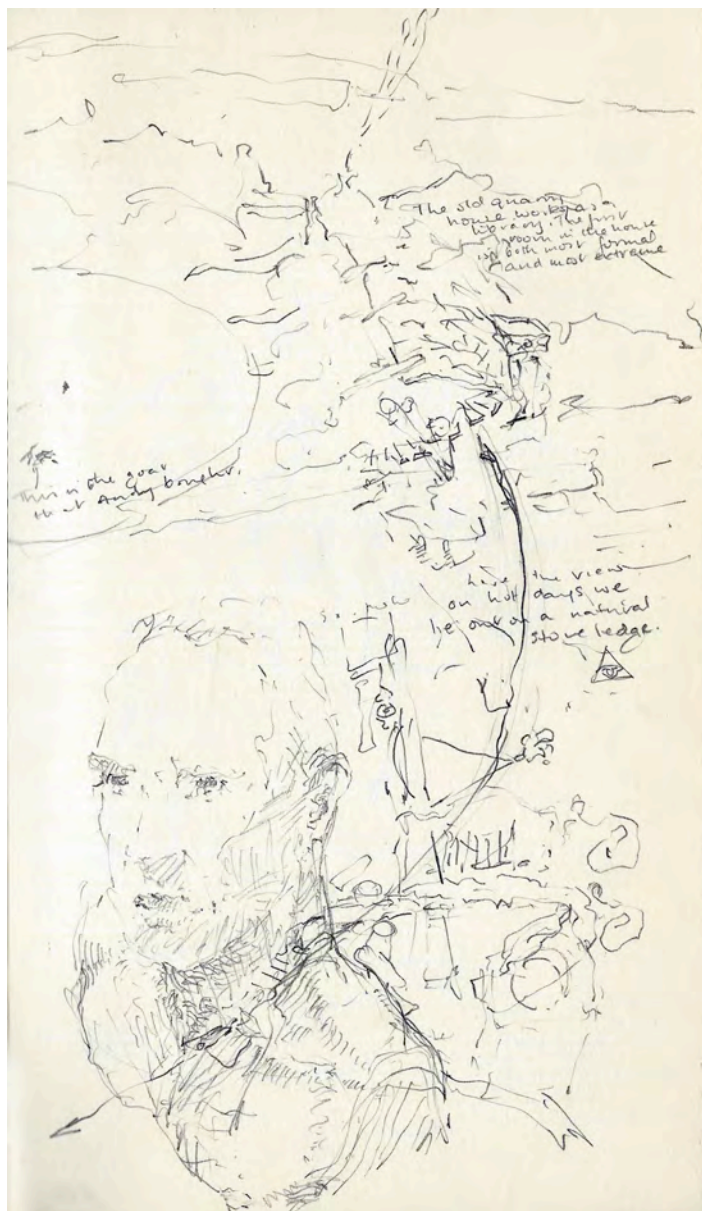 The old quarry
house works as a
library. The first
room in the house
is both most formal
and most extreme
This is the goat
that Andy bought.
the view
on hot days we
lie out on a natural
stone ledge.